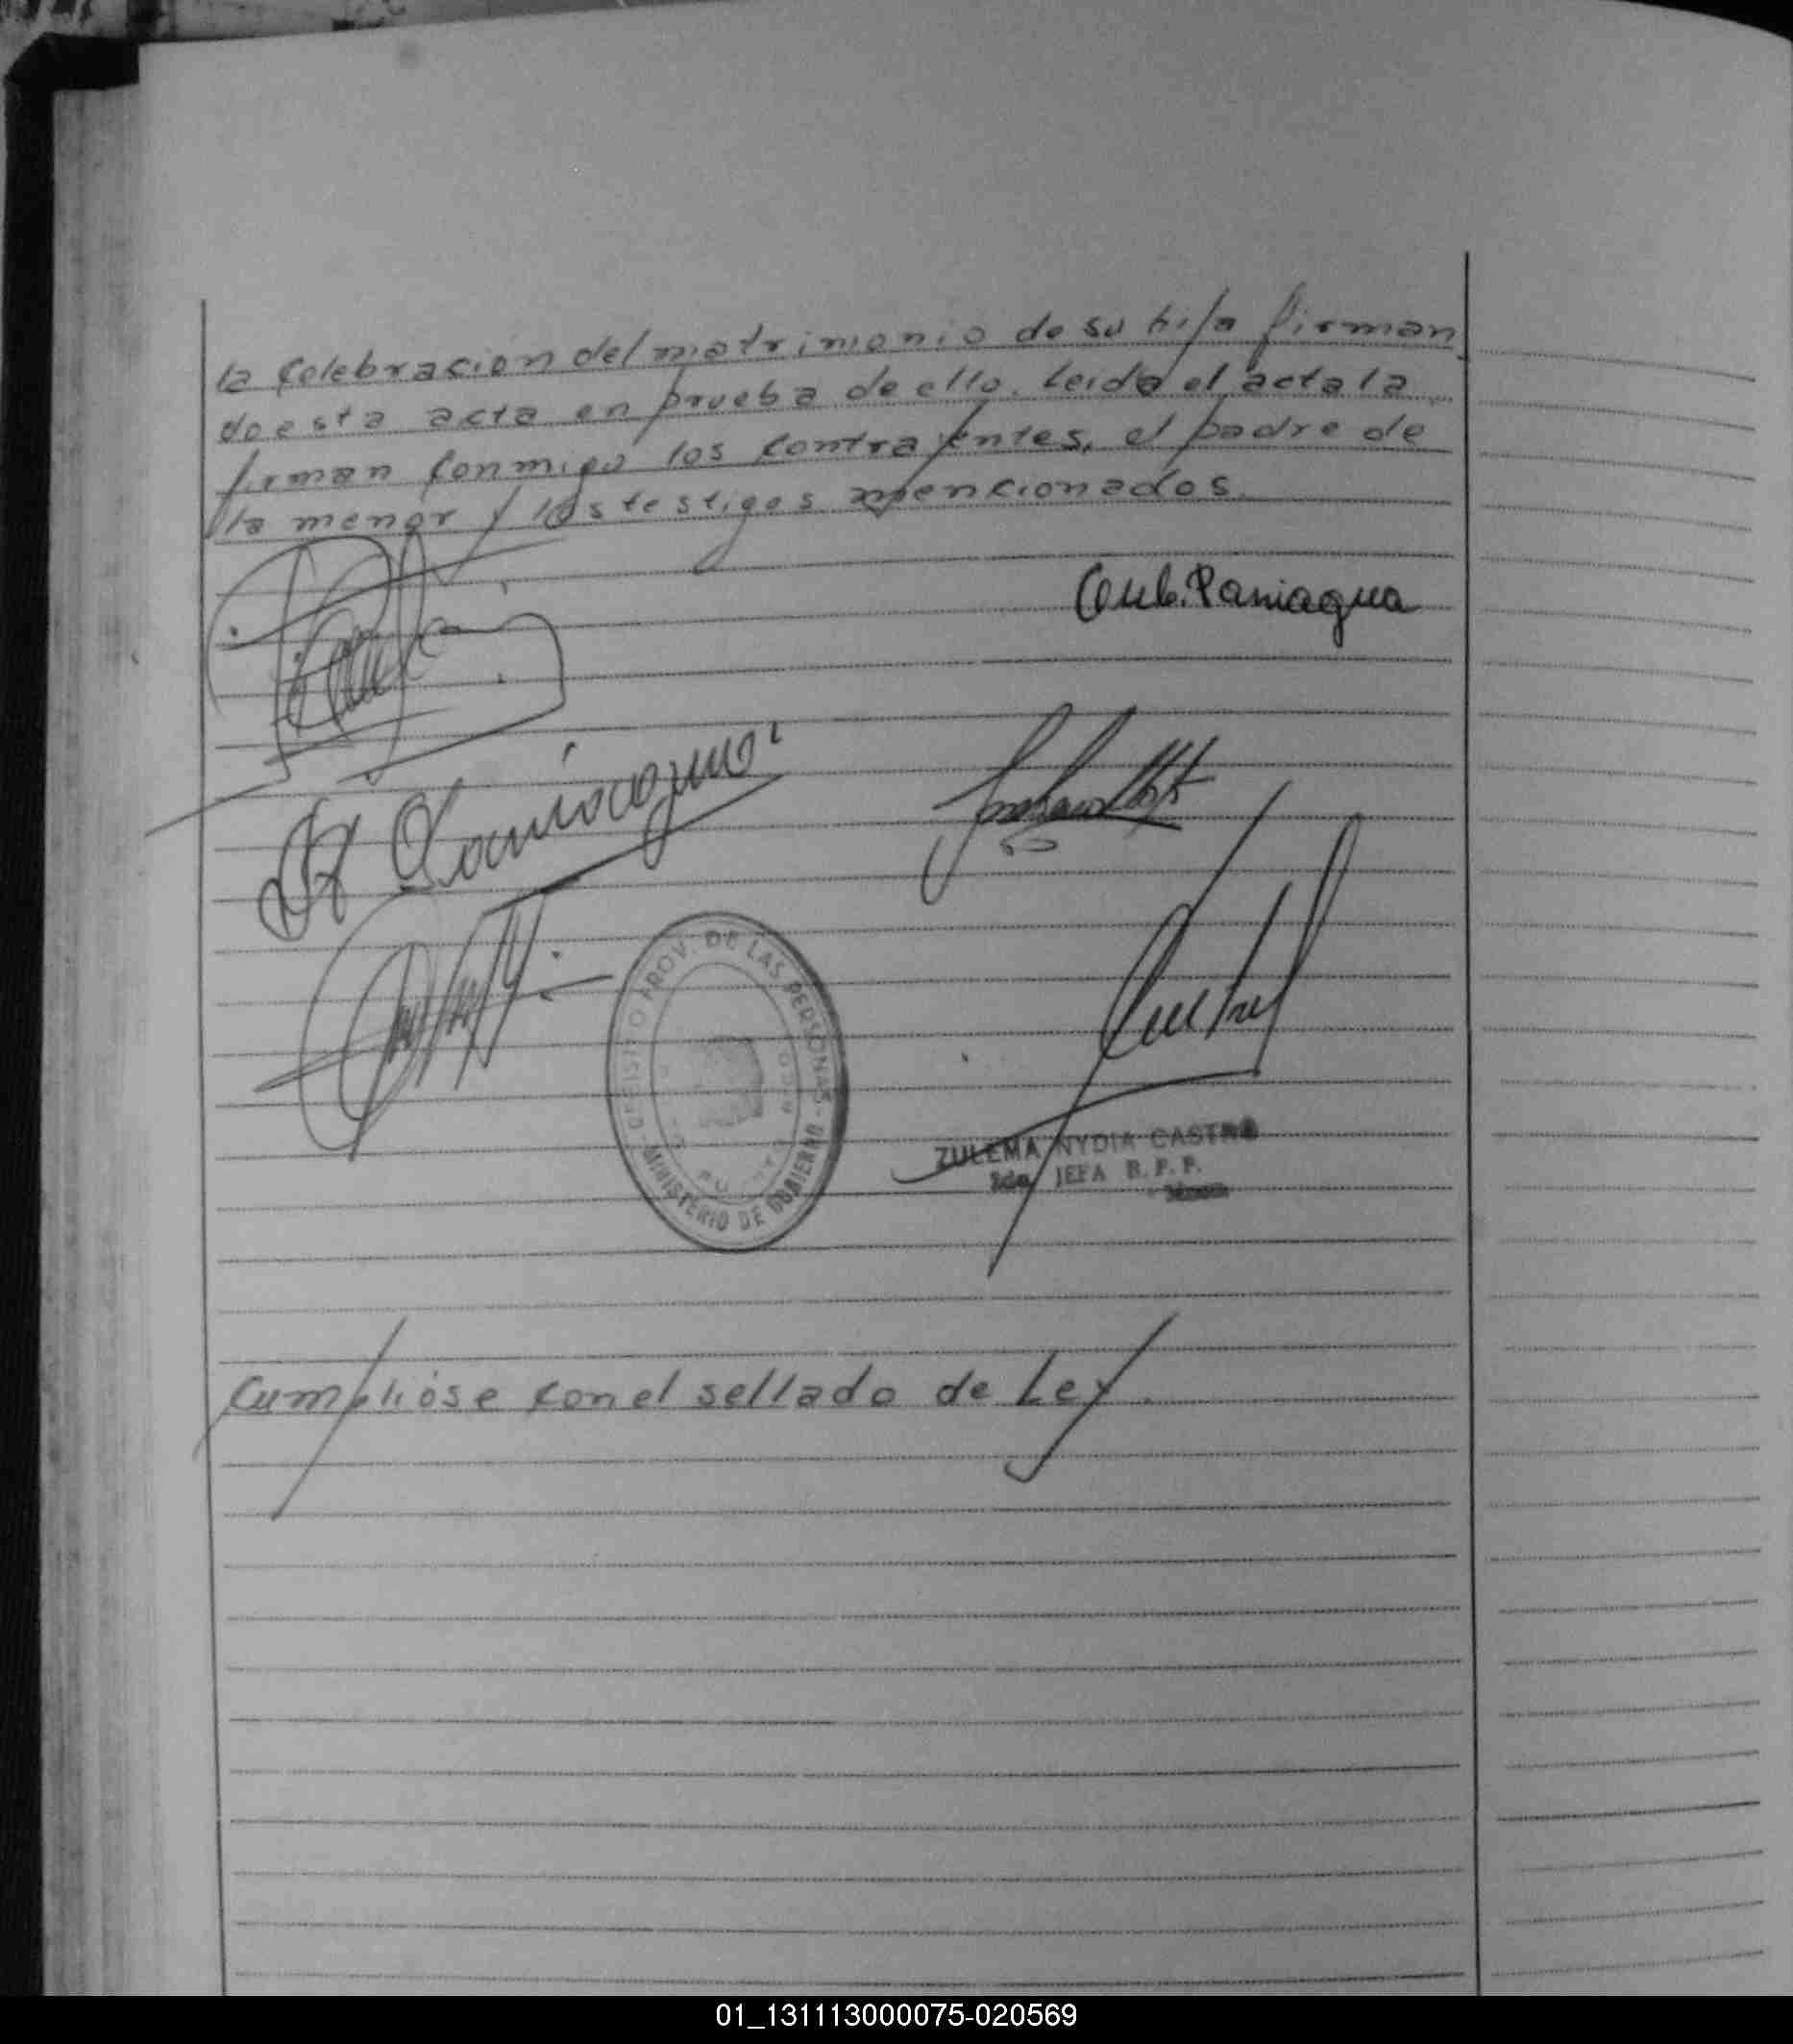 la celebración del matrimonio de su hija firman
do esta acta en prueba de ello. Leída el acta la
firman conmigo los contrayentes, el padre de
la menor y los testigos mencionados.
Paniagua
Paniagua
PROV. DE LAS PERSONAS
MINISTERIO DE GOBIERNO
ZULEMA NYDIA CASTRO
JEFA R. P. P.
Cumplióse con el sellado de Ley.
01_131113000075-020569